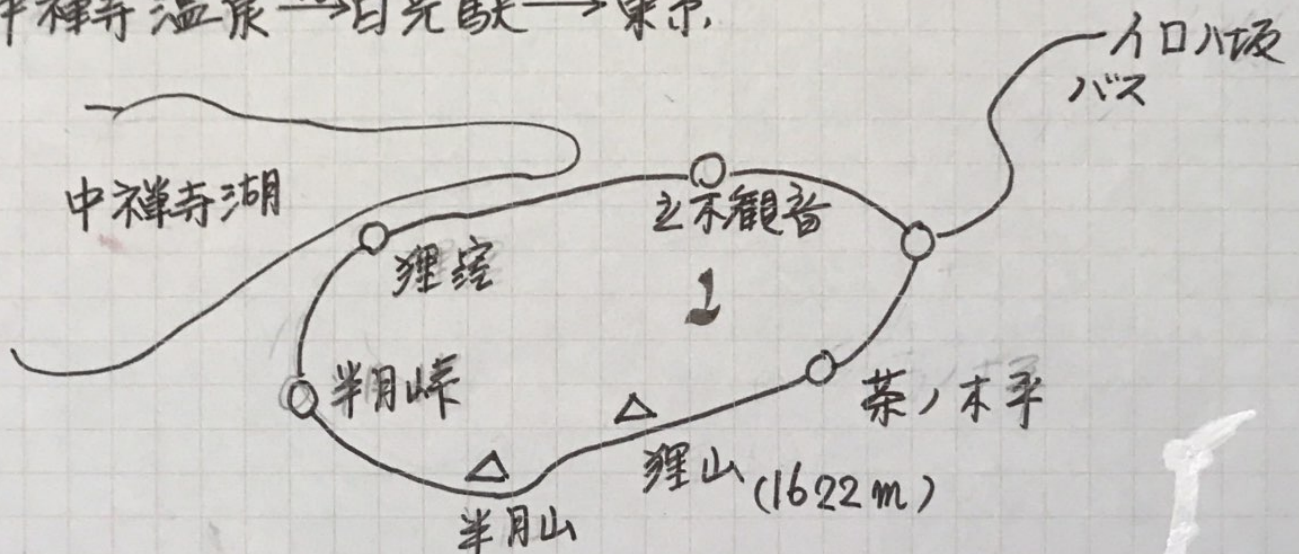 中禅寺温泉→日光駅→東京
イロハ坂
バス
中禅寺湖
立木観音
狸窪
1
半月峠
茶ノ木平
狸山(1622m)
半月山